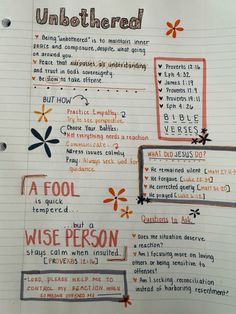 Unbothered
♥ Being "unbothered" is to maintain inner
peace and composure, despite what going
on around you.
♥ Peace that surpasses all understanding
and trust in God's sovereignty.
♥ Be slow to take offense.
♥ Proverbs 12:16
♥ Eph 4:32
♥ James 1:19
♥ Proverbs 19:11
♥ Eph 4:26
BIBLE
VERSES
BUT HOW
Practice Empathy:
Try to see perspective
Choose Your Battles:
Not everything needs a reaction
Communicate:
Address issues calmly
Pray: Always seek God for
guidance
WHAT DID JESUS DO?
♥ He remained silent
♥ He forgave [Luke 23:34]
♥ He corrected gently
♥ He prayed
A FOOL
is quick
tempered...
...but a
WISE PERSON
stays calm when insulted.
[PROVERBS 12:16]
Questions to Ask
♥ Does the situation deserve
a reaction?
♥ Am I focusing more on loving
others or being sensitive to
offenses?
♥ Am I seeking reconciliation
instead of harboring resentment?
LORD, PLEASE HELP ME TO
CONTROL MY REACTION WHEN
SOMEONE OFFENDS ME